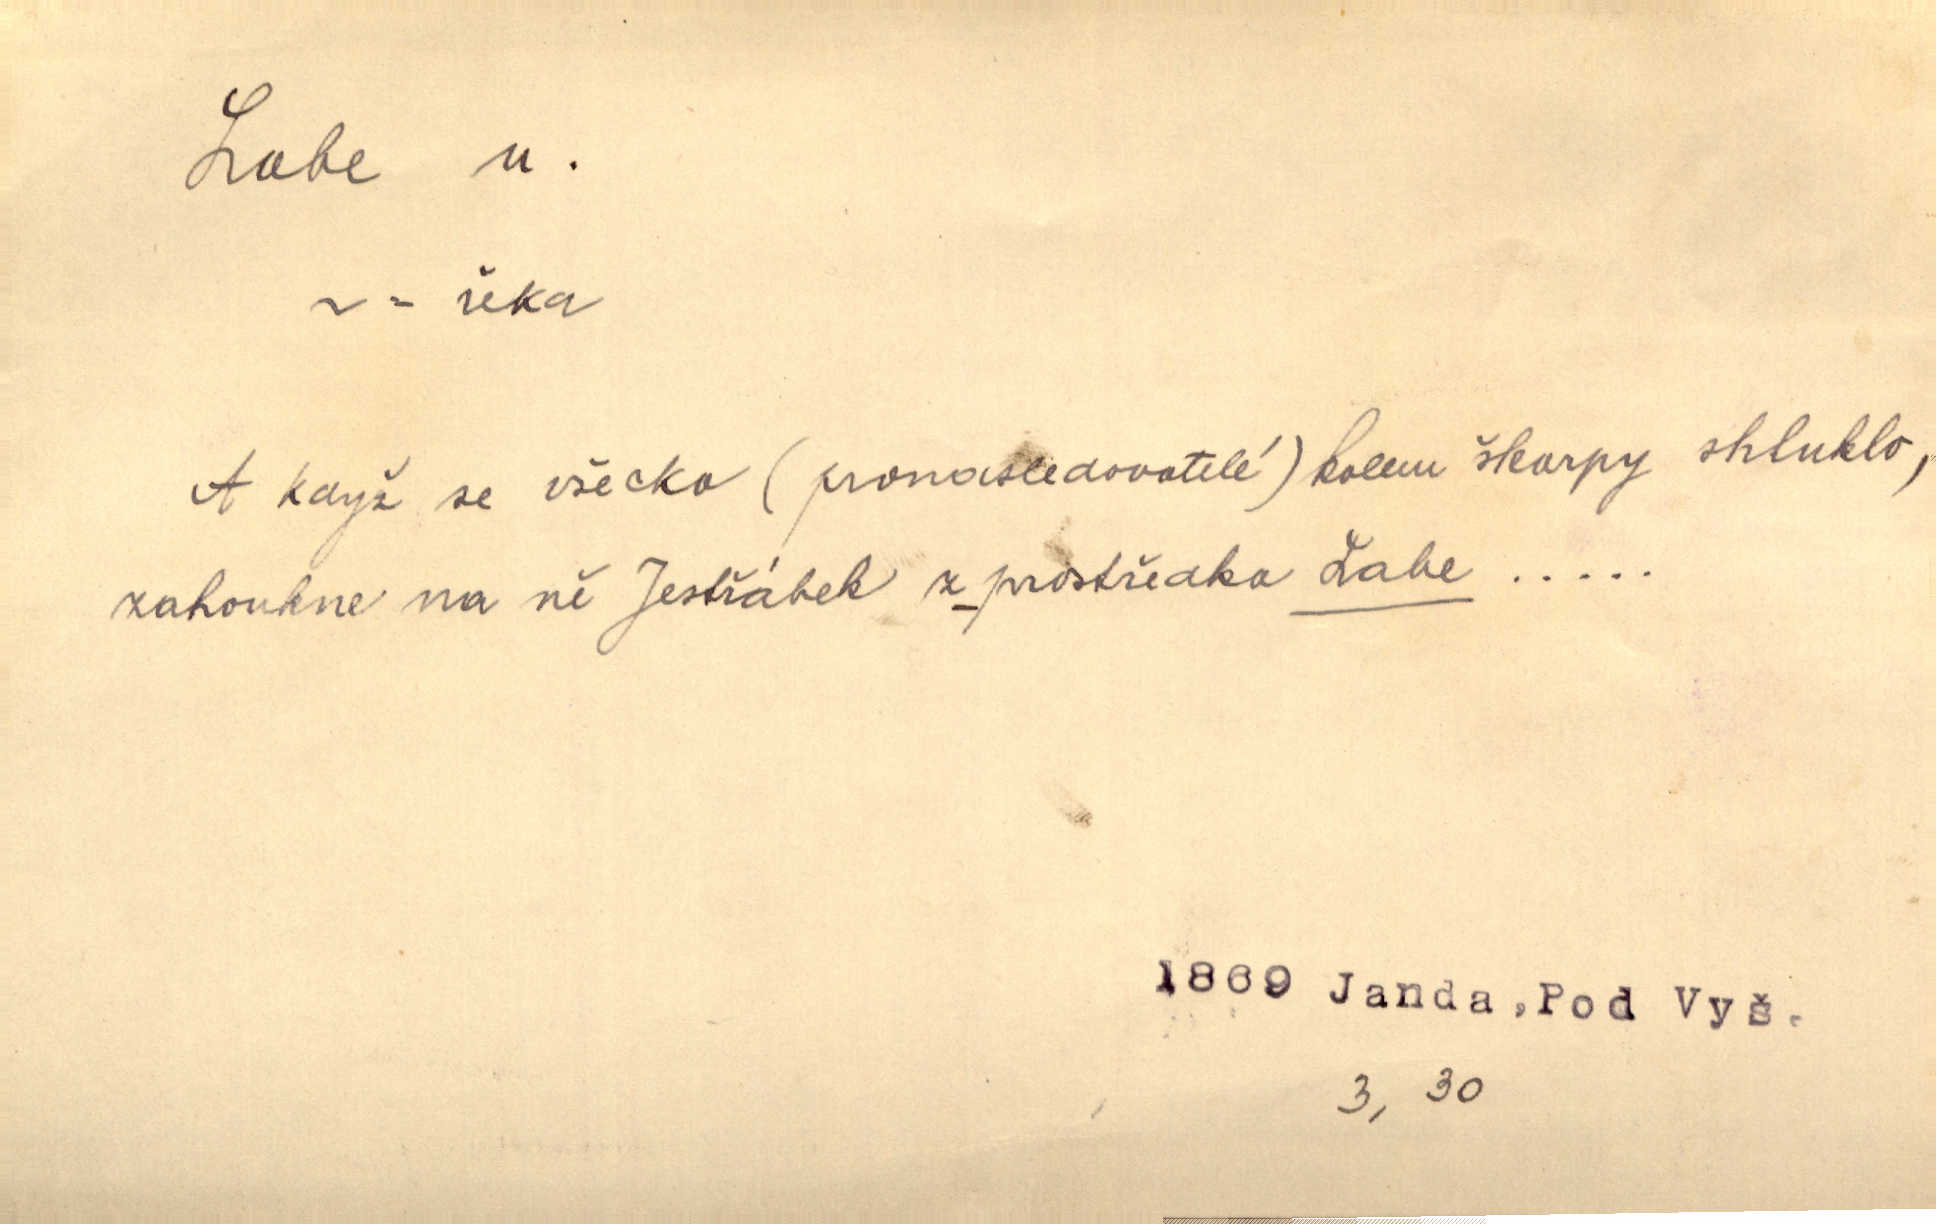 Labe n.
~ = řeka
A když se všecko (pronasledovatelé) kolem škarpy shluklo,
zahoukne na ně Jestřábek z prostředka Labe . . . . .
1869 Janda, Pod Vyš.
3, 30